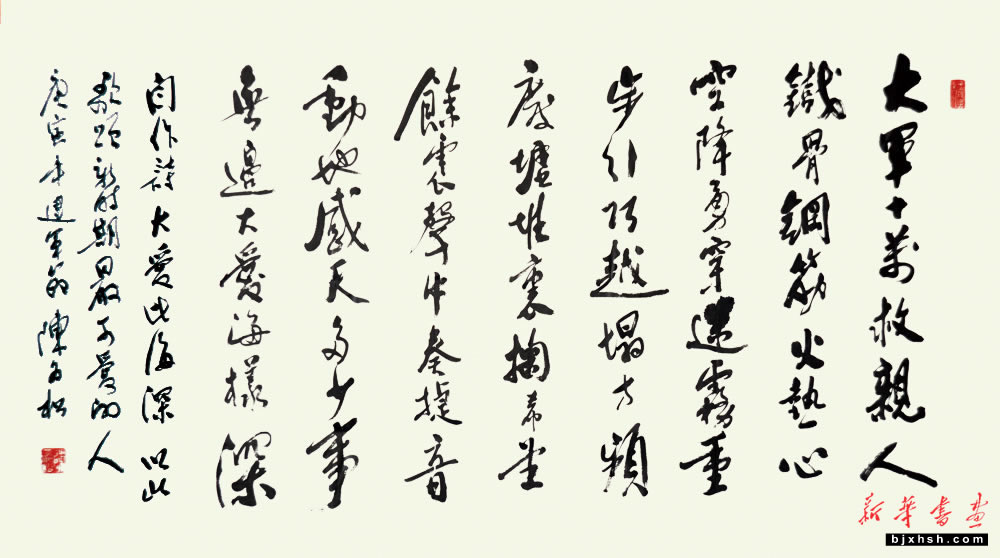 大軍十萬救親人
鐵骨鋼筋火熱心
空降勇穿迷霧重
步行巧越塌方頻
廢墟堆裏掏希望
餘震聲中奏捷音
動地感天多少事
無邊大愛海樣深
自作詩大愛比海深以此
歌頌新時期最可愛的人
庚寅年建軍節陳松
新華書画
bjxhsh.com